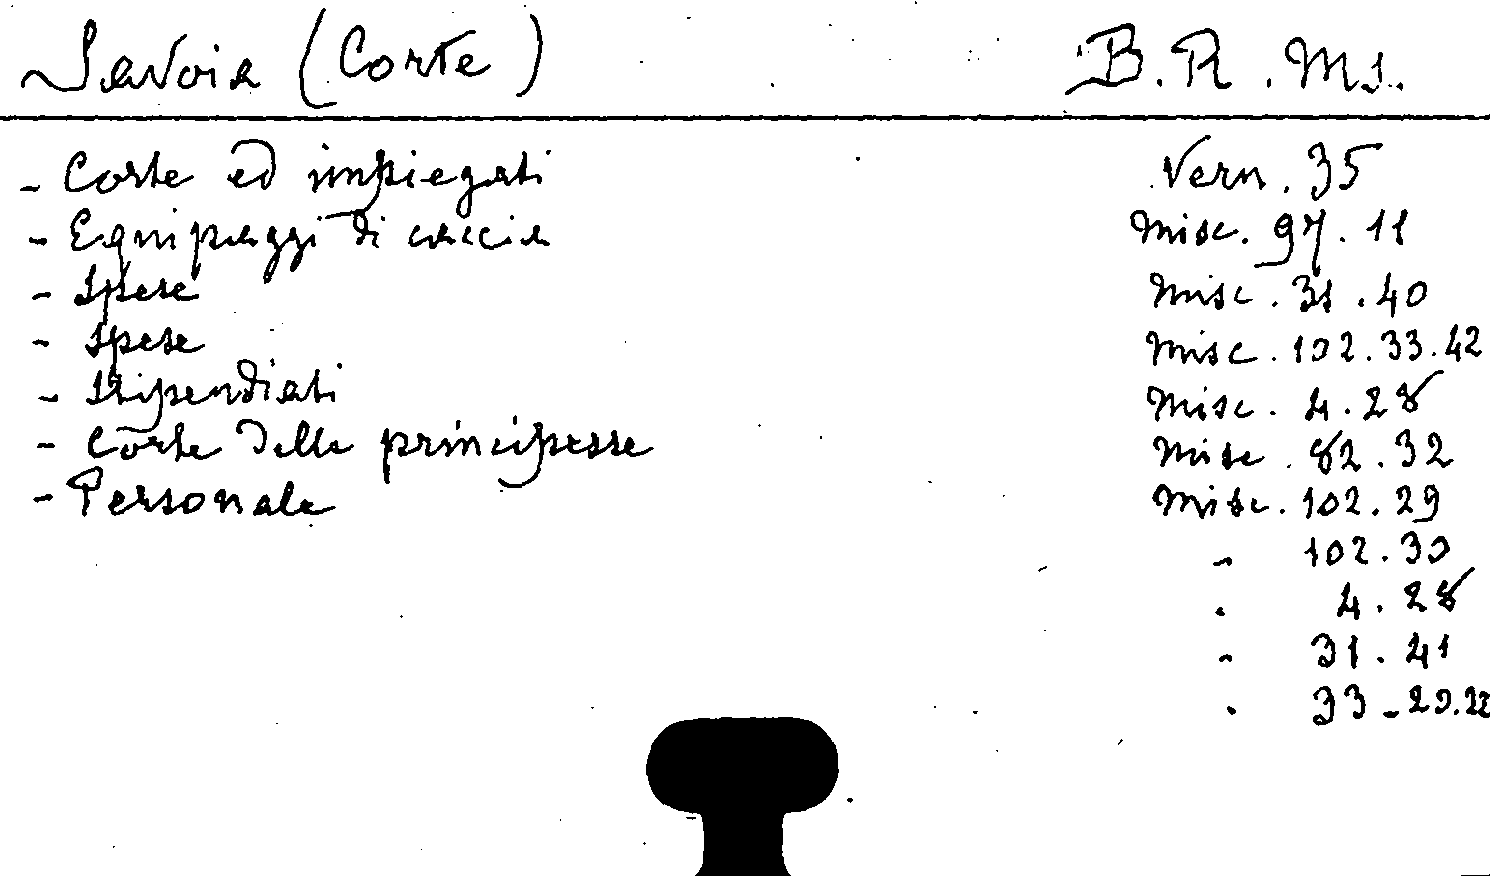 Savoia (Corte) B. R. Ms.
- Corte ed impiegati Vern. 35
- Equipaggi di caccia Misc. 97. 11
- Spese Misc. 31. 40
- Spese Misc. 102. 33. 42
- Stipendiati Misc. 4. 28
- Corte delle principesse Misc. 82. 32
- Personale Misc. 102. 29
" 102. 30
" 4. 28
" 31. 41
" 33 - 20. 22